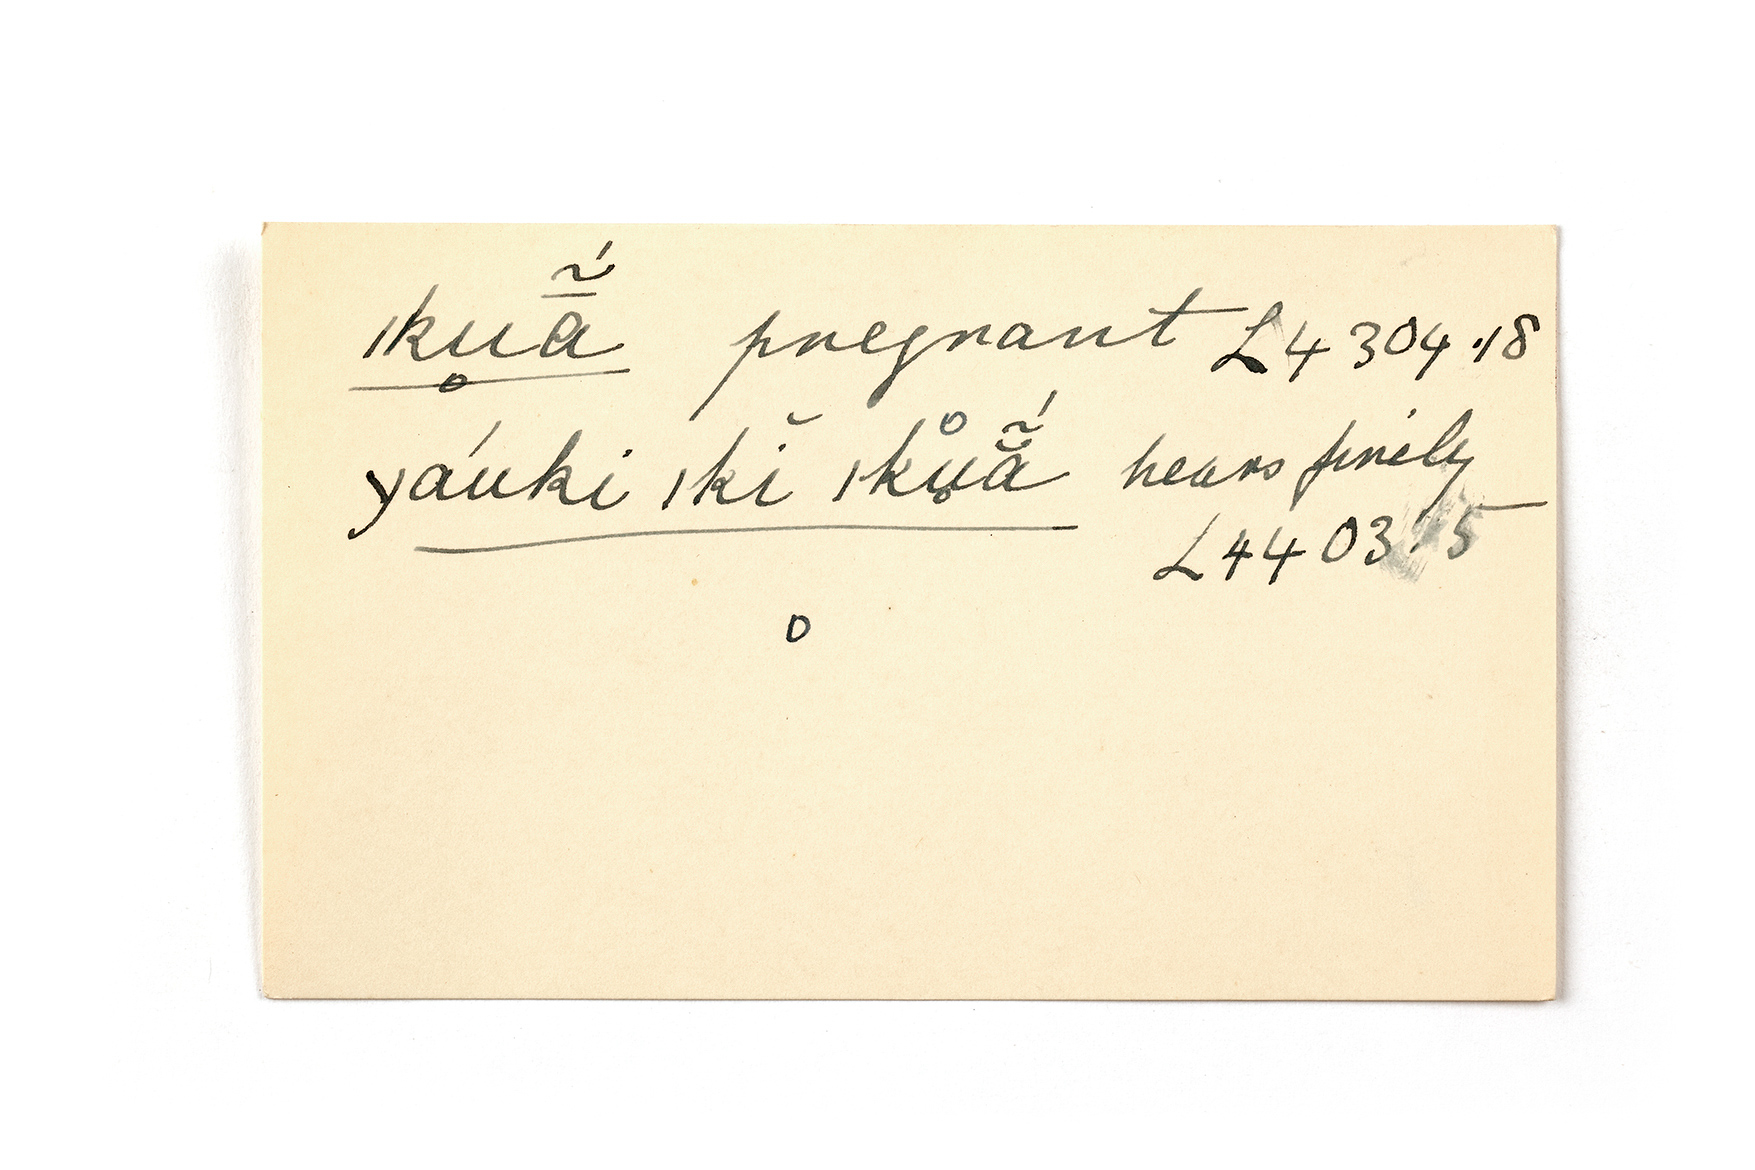 ıku̥ā̃́ pregnant L4 304.18
yáuki ıkĭ ıku̥ã́ hears finely
L4 403.5
o